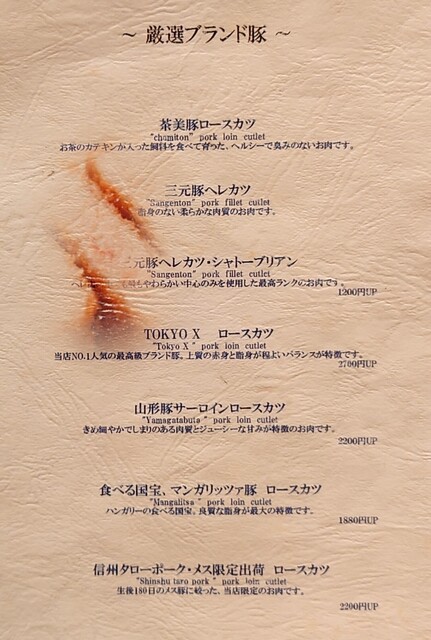 ～ 厳選ブランド豚 ～
茶美豚ロースカツ
"chamiton" pork loin cutlet
お茶のカテキンが入った飼料を食べて育った、ヘルシーで臭みのないお肉です。
三元豚ヘレカツ
"Sangenton" pork fillet cutlet
脂身のない柔らかな肉質のお肉です。
元豚ヘレカツ・シャトーブリアン
"Sangenton" pork fillet cutlet
やわらかい中心のみを使用した最高ランクのお肉です。
1200円UP
TOKYO X ロースカツ
"Tokyo X" pork loin cutlet
当店NO.1人気の最高級ブランド豚。上質の赤身と脂身が程よいバランスが特徴です。
2700円UP
山形豚サーロインロースカツ
"Yamagatabuta" pork loin cutlet
きめ細やかでしまりのある肉質とジューシーな甘みが特徴のお肉です。
2200円UP
食べる国宝、マンガリッツァ豚 ロースカツ
"Mangalitsa" pork loin cutlet
ハンガリーの食べる国宝、良質な脂身が最大の特徴です。
1880円UP
信州タローポーク・メス限定出荷 ロースカツ
"Shinshu taro pork" pork loin cutlet
生後180日のメス豚に絞った、当店限定のお肉です。
2200円UP